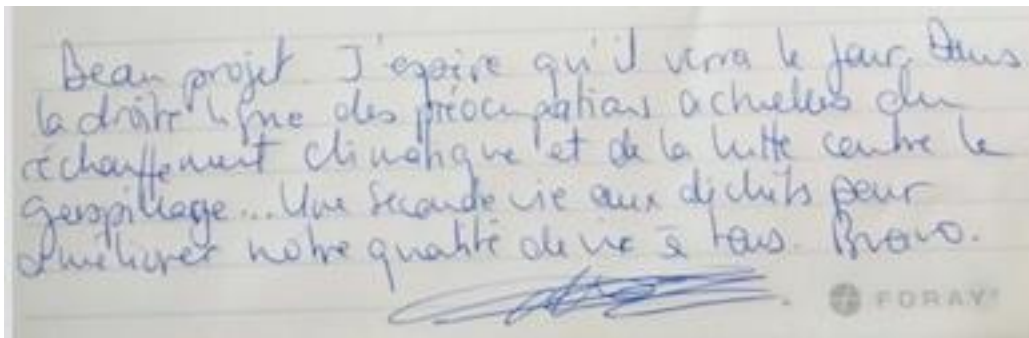 Beau projet. J'espère qu'il verra le jour. Dans
la droite ligne des préoccupations actuelles du
réchauffement climatique et de la lutte contre le
gaspillage... Une seconde vie aux déchets pour
améliorer notre qualité de vie à tous. Bravo.
FORAY